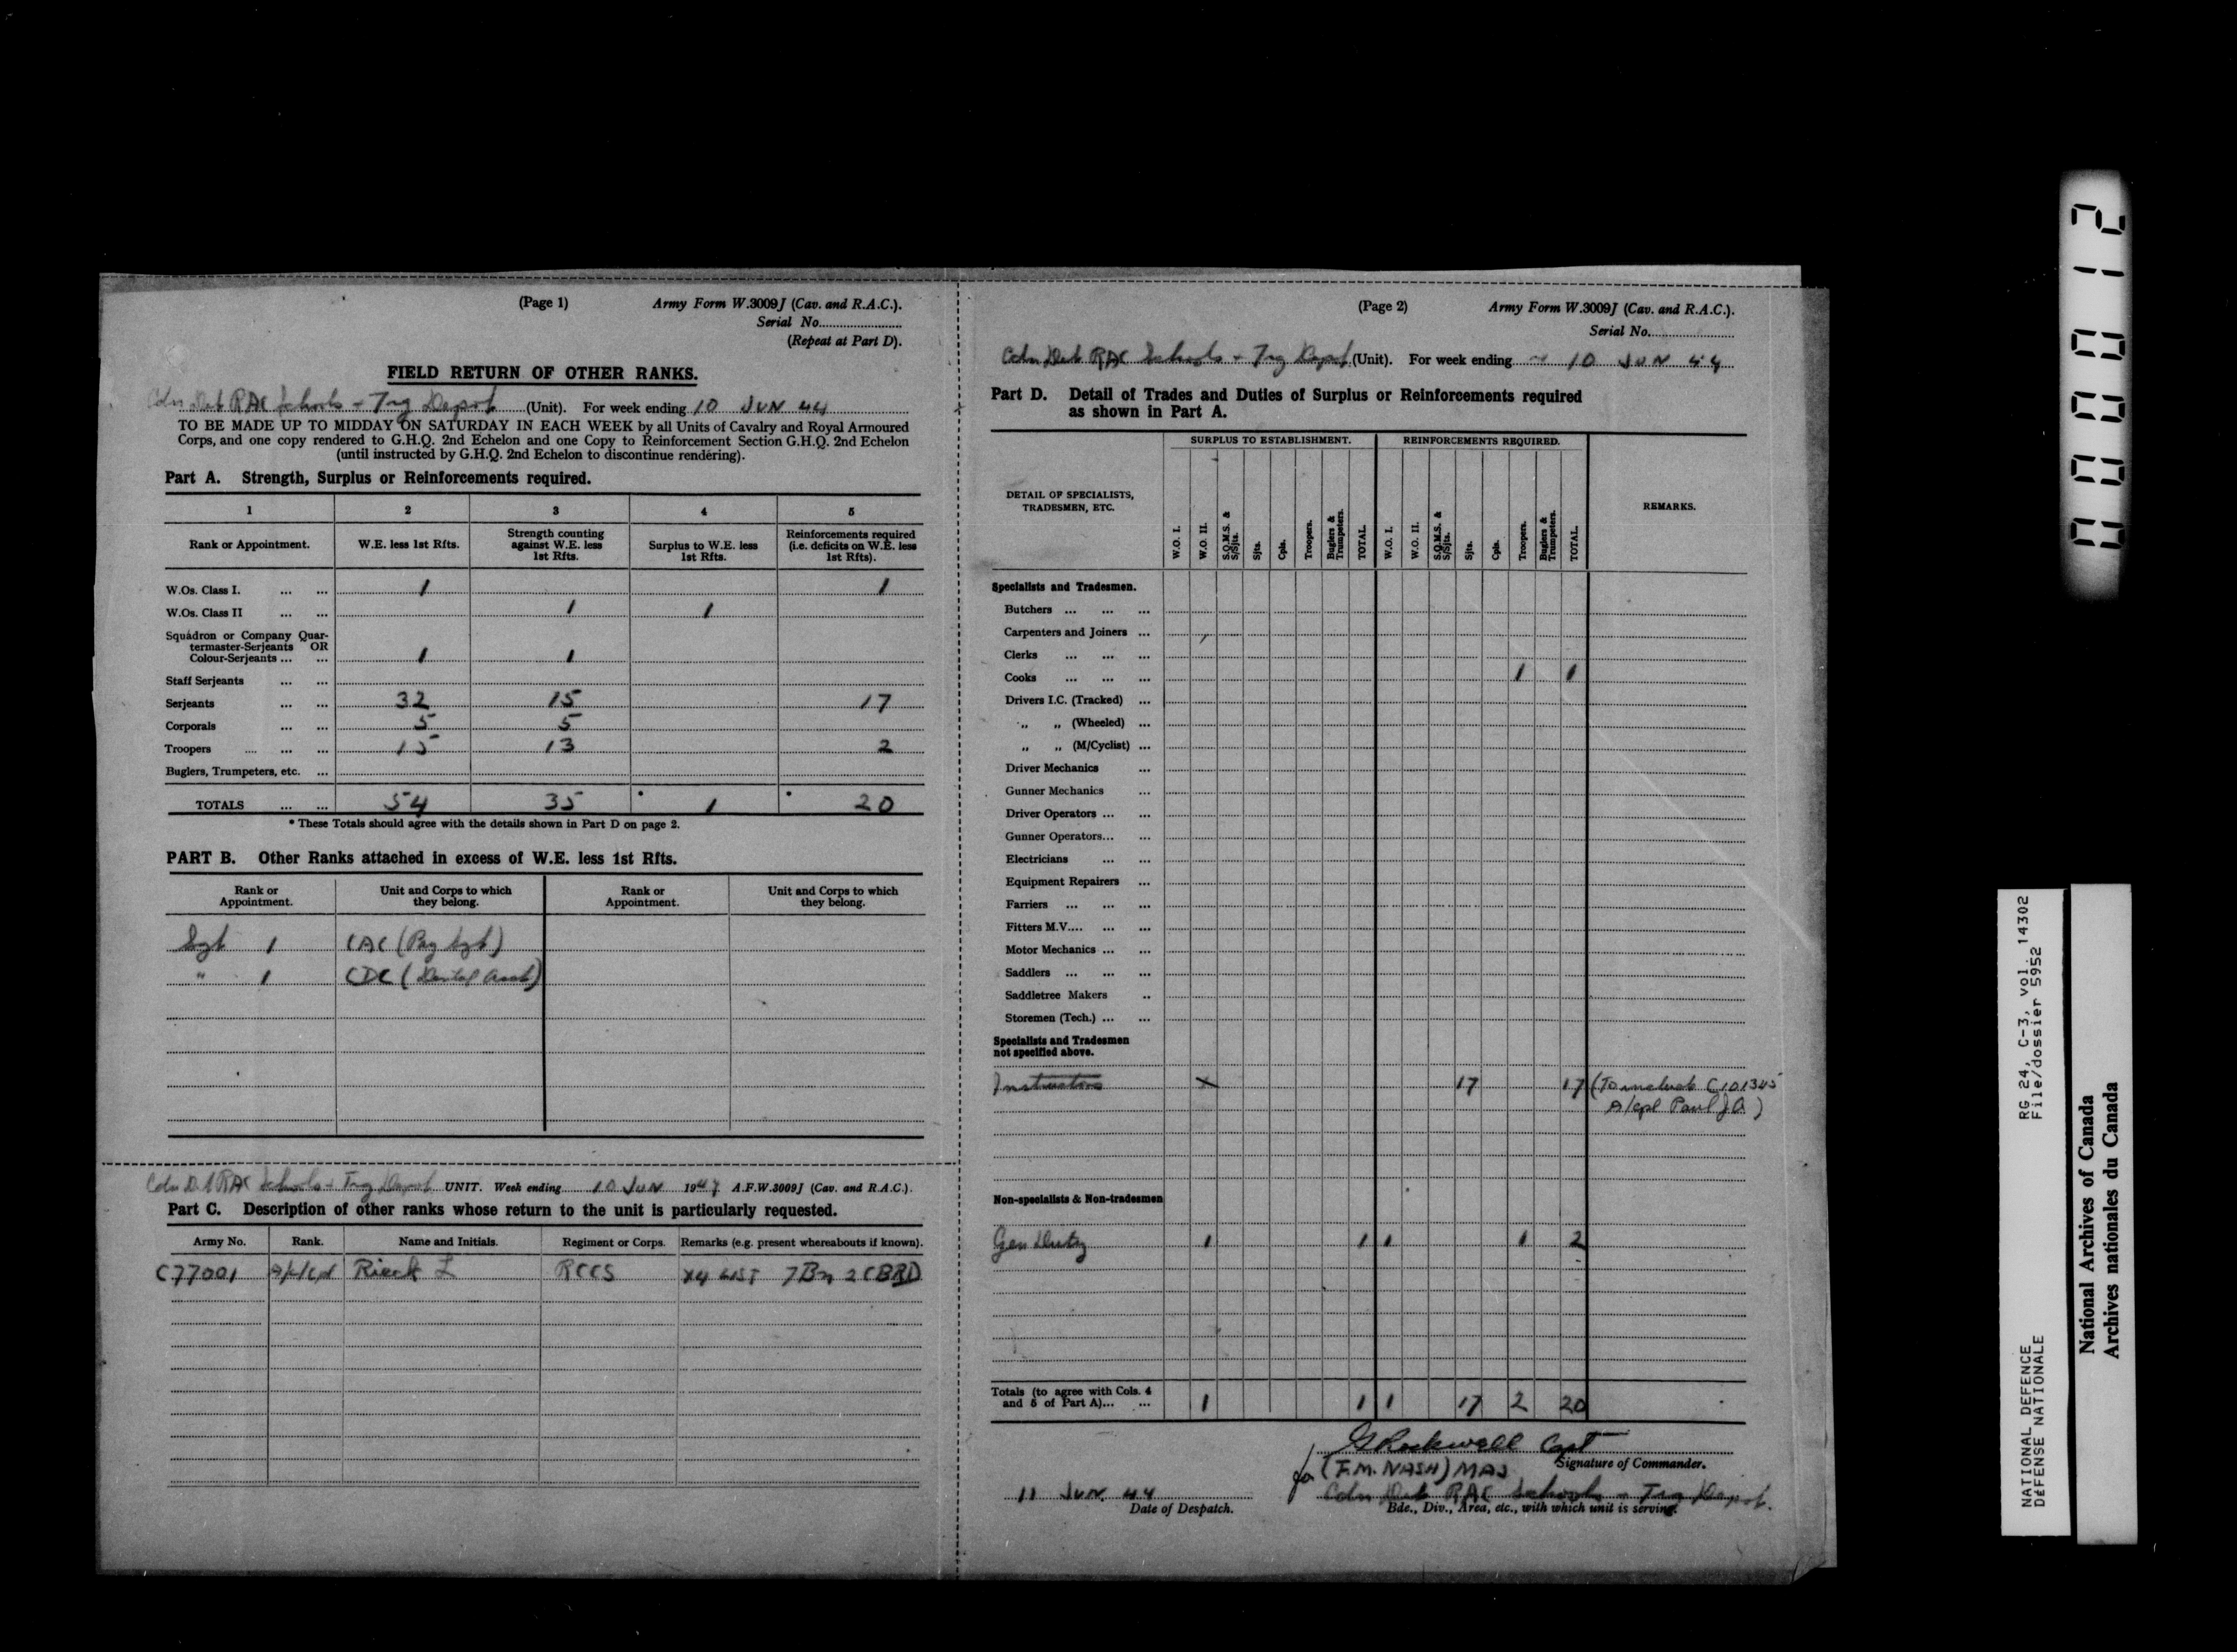 (Page 1) Army Form W.3009J (Cav. and R.A.C.).
Serial No.
(Repeat at Part D).
FIELD RETURN OF OTHER RANKS.
Cdn Det RAC Schools + Trg Depot (Unit). For week ending 10 JUN 44
TO BE MADE UP TO MIDDAY ON SATURDAY IN EACH WEEK by all Units of Cavalry and Royal Armoured
Corps, and one copy rendered to G.H.Q. 2nd Echelon and one Copy to Reinforcement Section G.H.Q. 2nd Echelon
(until instructed by G.H.Q. 2nd Echelon to discontinue rendering).
Part A. Strength, Surplus or Reinforcements required.
1 2 3 4 5
Rank or Appointment. W.E. less 1st Rfts. Strength counting against W.E. less 1st Rfts. Surplus to W.E. less 1st Rfts. Reinforcements required (i.e. deficits on W.E. less 1st Rfts).
W.Os. Class I. ... ... 1 1
W.Os. Class II ... ... 1 1
Squadron or Company Quar-
termaster-Serjeants OR
Colour-Serjeants ... ... 1 1
Staff Serjeants ... ...
Serjeants ... ... 32 15 17
Corporals ... ... 5 5
Troopers ... ... ... 15 13 2
Buglers, Trumpeters, etc. ...
TOTALS ... ... 54 35 * 1 * 20
* These Totals should agree with the details shown in Part D on page 2.
PART B. Other Ranks attached in excess of W.E. less 1st Rfts.
Rank or Appointment. Unit and Corps to which they belong. Rank or Appointment. Unit and Corps to which they belong.
Sgt 1 CAC (Pay Sgt)
" 1 CDC (Dental Asst)
Cdn Det RAC Schools + Trg Depot UNIT. Week ending 10 JUN 1944 A.F.W.3009J (Cav. and R.A.C.).
Part C. Description of other ranks whose return to the unit is particularly requested.
Army No. Rank. Name and Initials. Regiment or Corps. Remarks (e.g. present whereabouts if known).
C77001 Rieck L RCCS X4 LIST 7 Bn 2 CBRD
(Page 2) Army Form W.3009J (Cav. and R.A.C.).
Serial No.
Cdn Det RAC Schools + Trg Depot (Unit). For week ending 10 JUN 44
Part D. Detail of Trades and Duties of Surplus or Reinforcements required
as shown in Part A.
SURPLUS TO ESTABLISHMENT. REINFORCEMENTS REQUIRED.
DETAIL OF SPECIALISTS, TRADESMEN, ETC. W.O. I. W.O. II. S.Q.M.S. & S/Sjts. Sjts. Cpls. Troopers. Buglers & Trumpeters. TOTAL. W.O. I. W.O. II. S.Q.M.S. & S/Sjts. Sjts. Cpls. Troopers. Buglers & Trumpeters. TOTAL. REMARKS.
Specialists and Tradesmen.
Butchers ... ... ...
Carpenters and Joiners ...
Clerks ... ... ...
Cooks ... ... ... 1 1
Drivers I.C. (Tracked) ...
„ „ (Wheeled) ...
„ „ (M/Cyclist) ...
Driver Mechanics ...
Gunner Mechanics ...
Driver Operators ... ...
Gunner Operators... ...
Electricians ... ...
Equipment Repairers ...
Farriers ... ... ...
Fitters M.V.... ... ...
Motor Mechanics ... ...
Saddlers ... ... ...
Saddletree Makers ..
Storemen (Tech.) ... ...
Specialists and Tradesmen
not specified above.
Instructors X 17 17 (To include C101345
A/Cpl Paul J A )
Non-specialists & Non-tradesmen
Gen Duty 1 1 1 1 2
Totals (to agree with Cols. 4
and 5 of Part A)... ... 1 1 1 17 2 20
G Rockwell Capt
Signature of Commander.
for (F.M. NASH) MAJ
11 JUN 44 Cdn Det RAC Schools + Trg Depot.
Date of Despatch. Bde., Div., Area, etc., with which unit is serving.
000012
RG 24, C-3, vol. 14302
File/dossier 5952
NATIONAL DEFENCE
DÉFENSE NATIONALE
National Archives of Canada
Archives nationales du Canada